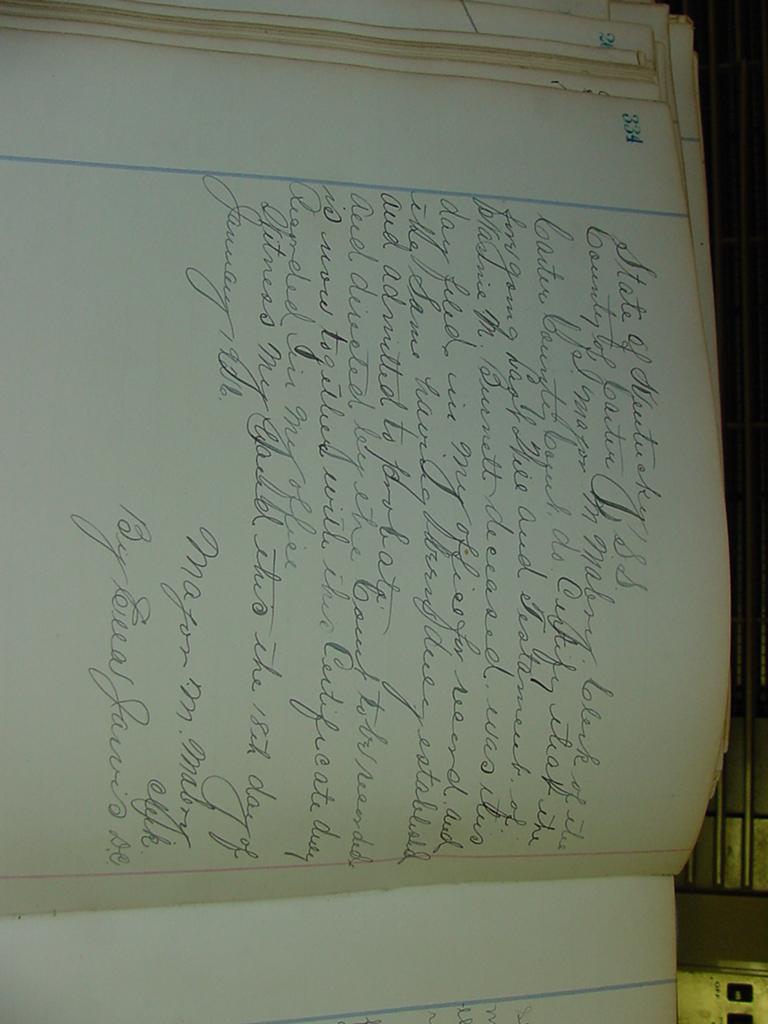 334
State of Kentucky
County of Carter SS
I, Major M Mabry Clerk of the
Carter County Court do Certify that the
forgoing Last Will and Testament of
M. Burnett deceased, was this
day filed in my office for record and
the Same having been duly established
and admitted to Probate
and directed by the Court to be recorded
is now together with this Certificate duly
Recorded in my office
Witness my hand this the 18th day of
January
Major M. Mabry
Clk
By Jarvis D.C
OFF